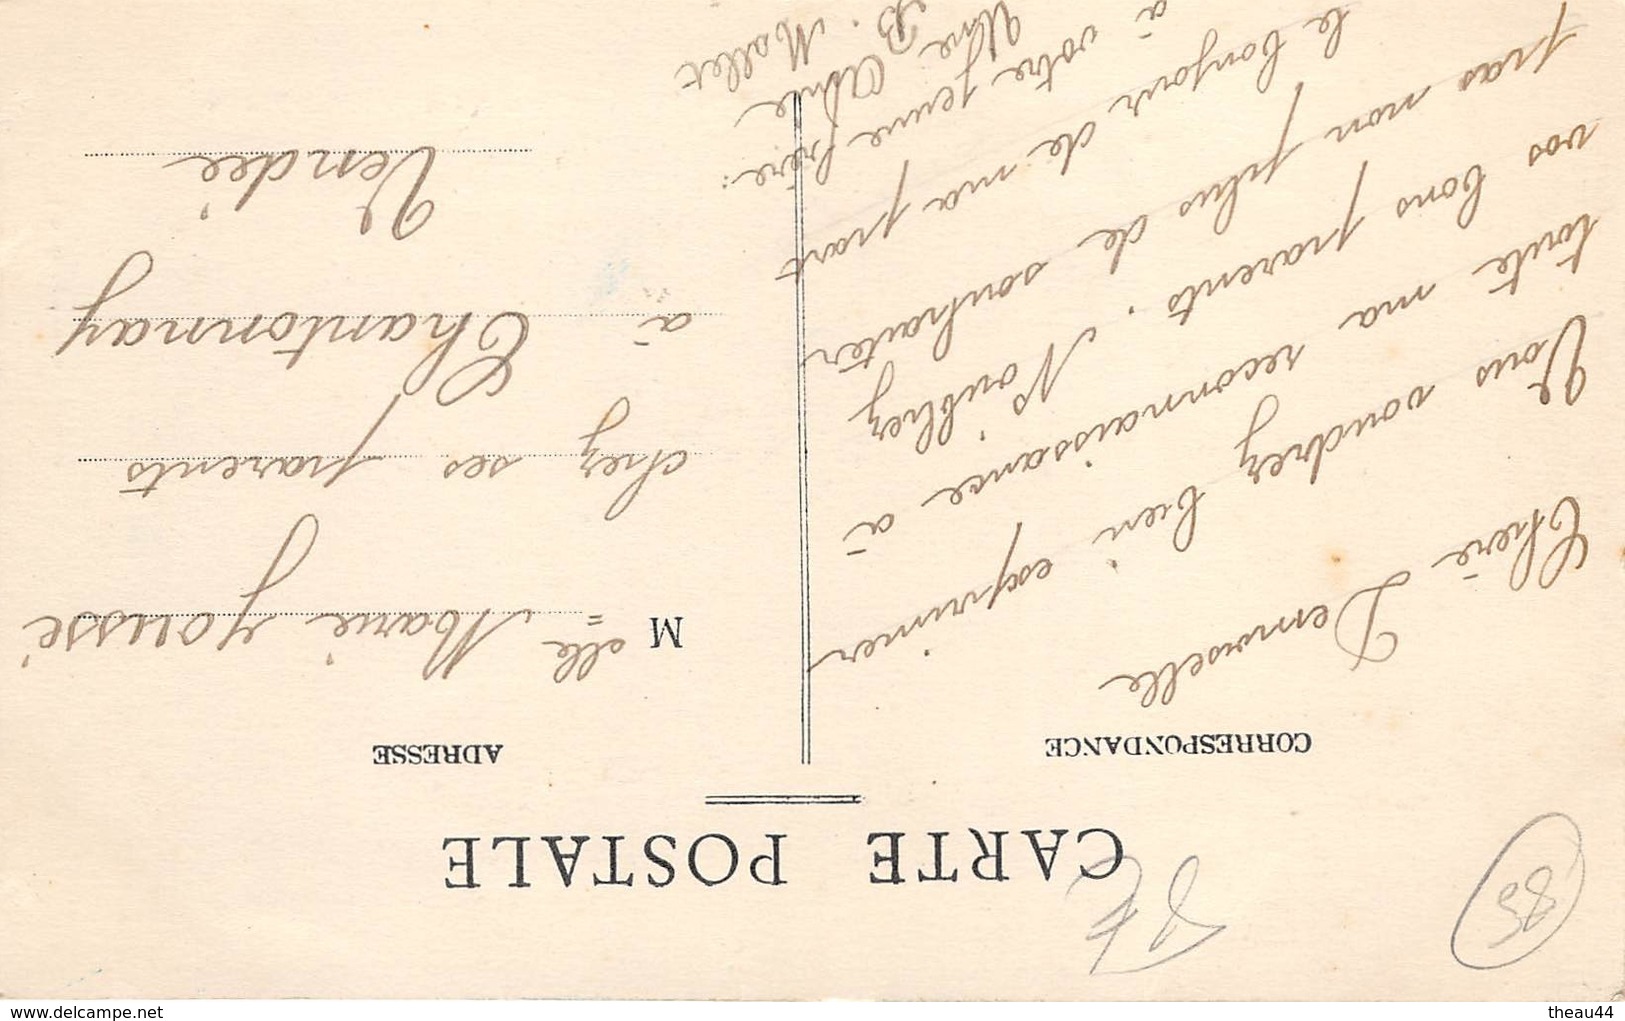 CARTE POSTALE
CORRESPONDANCE
Chère Demoiselle
Vous voudrez bien exprimer
toute ma reconnaissance à
vos bons parents. N'oubliez
pas non plus de souhaiter
le bonjour de ma part
à votre jeune frère.
Une Amie
B. Mallet
ADRESSE
M elle Marie
chez ses parents
à Chantonnay
Vendée
85
www.delcampe.net
theau44